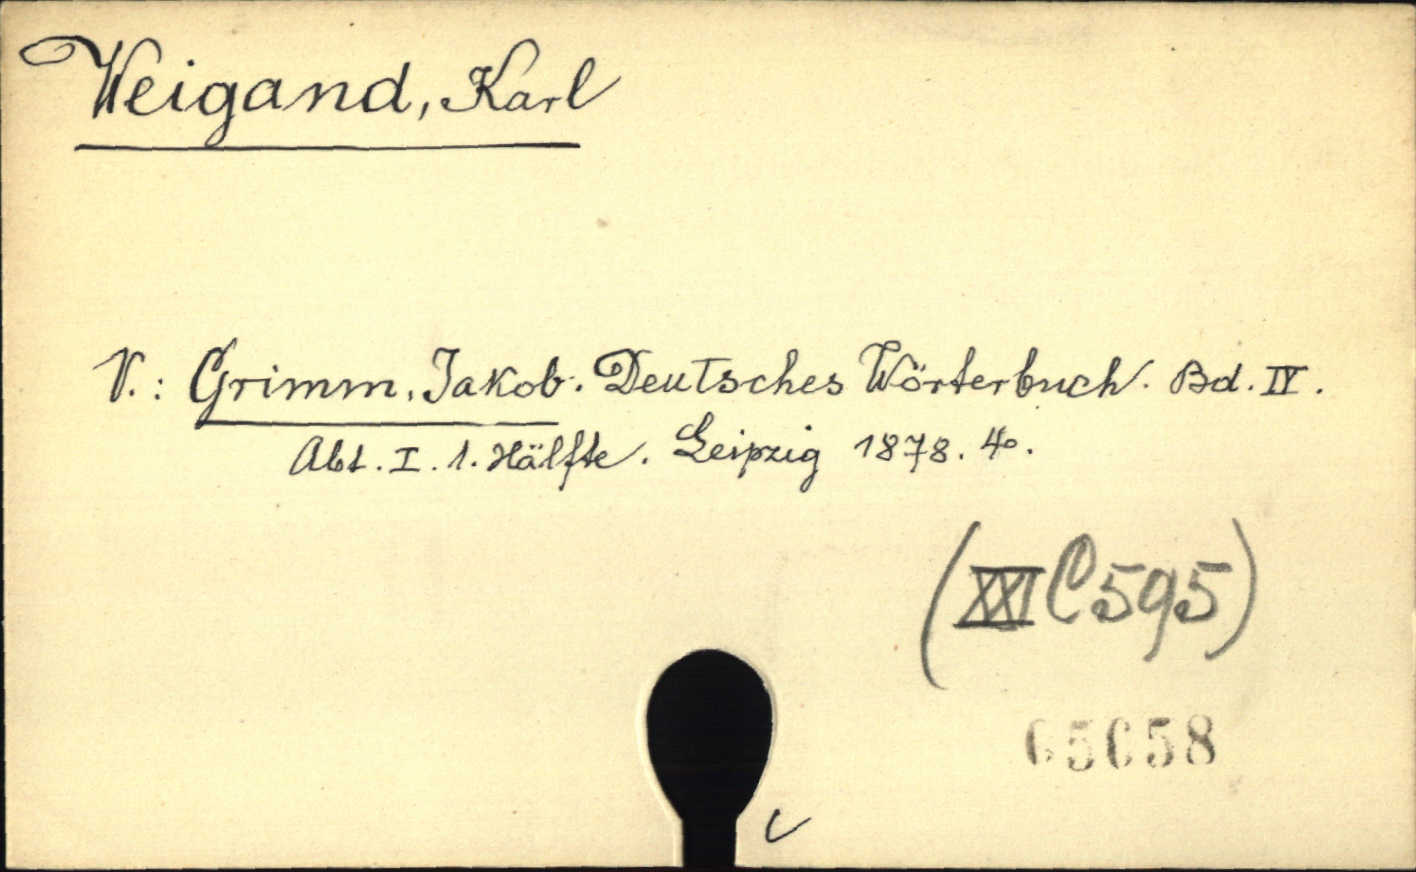 Weigand, Karl
V.: Grimm, Jakob. Deutsches Wörterbuch. Bd. IV.
Abt. I. 1. Hälfte. Leipzig 1878. 4°.
(XXI C 595)
65658